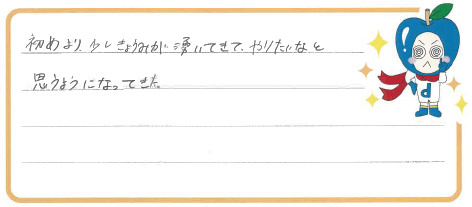 初めより、少しきょうみが湧いてきて、やりたいなと
思うようになってきた。
d